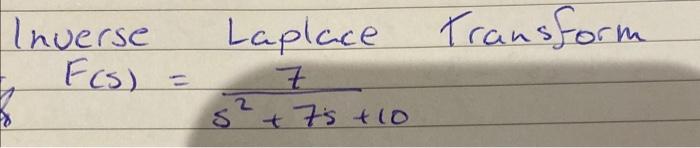 Inverse Laplace Transform
F(s) = 7
s² + 7s + 10